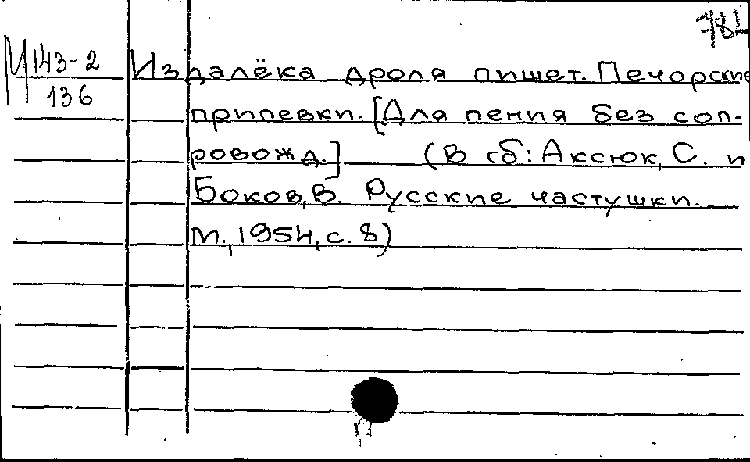 М 143-2
136
Издалёка дроля пишет. Печорские
припевки. [Для пения без соп-
ровожд.] (В сб: Аксюк, С. и
Боков, В. Русские частушки.
М., 1954, с. 8)